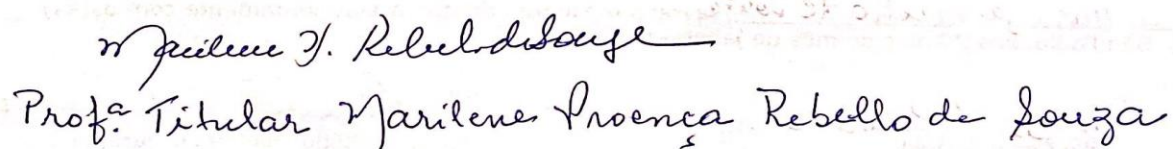 Marilene P. Rebello de Souza
Prof.ª Titular Marilene Proença Rebello de Souza